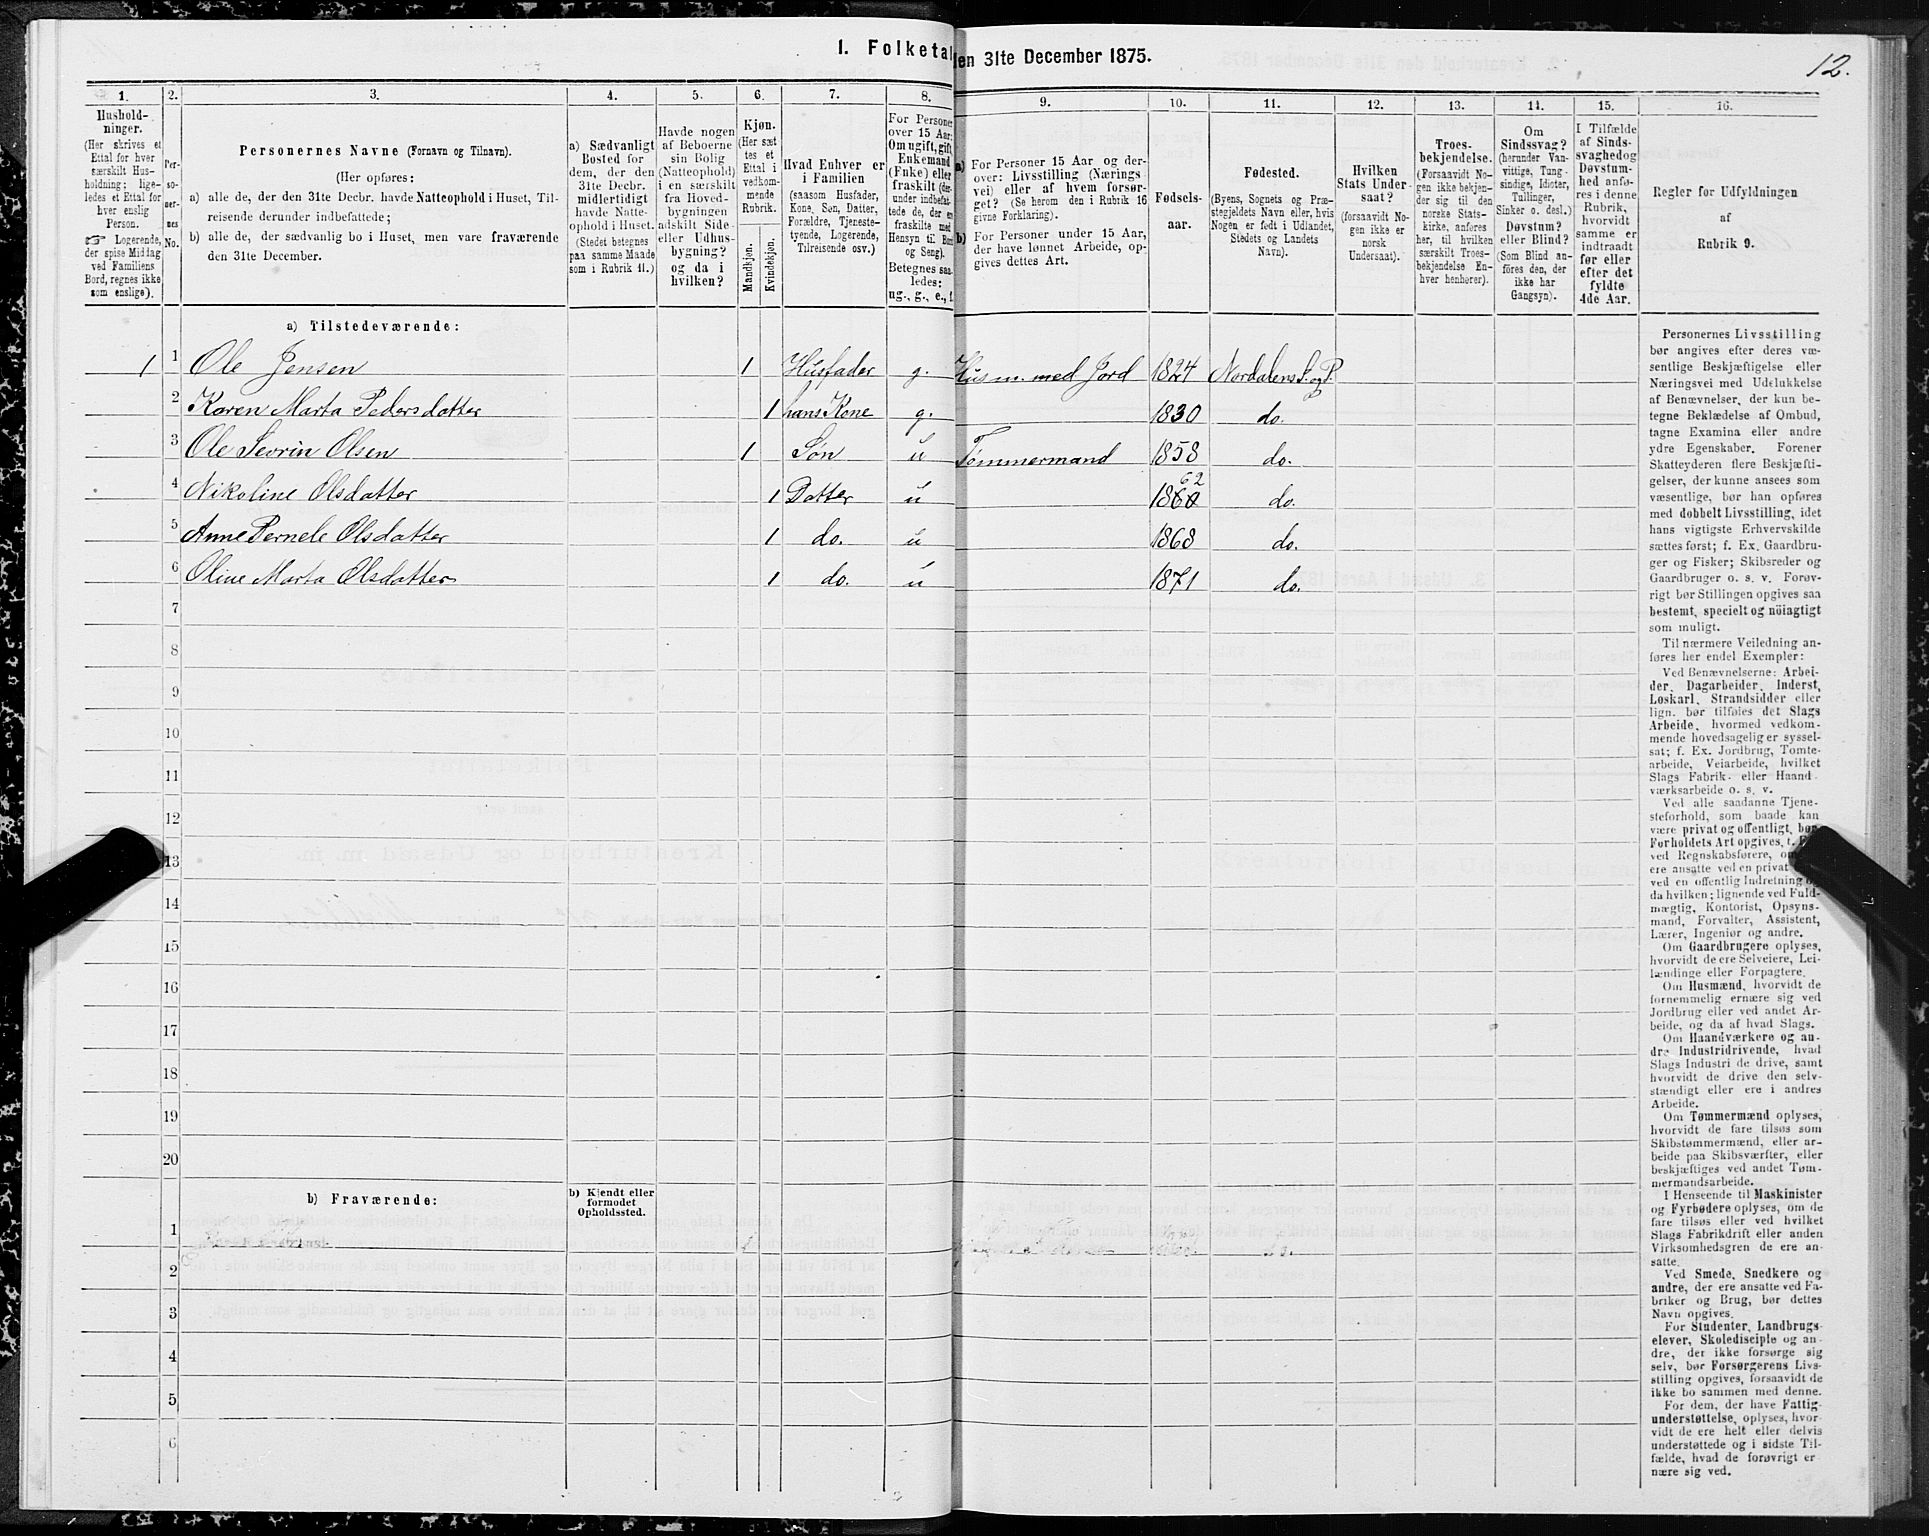 1. Folketal
den 31te December 1875.
12.
1.
2.
3.
4.
5.
6.
7.
8.
9.
10.
11.
12.
13.
14.
15.
16.
Hushold-
ninger.
(Her skrives et
Ettal for hver
særskilt Hus-
holdning; lige-
ledes et Ettal for
hver enslig
Person.
☞ Logerende,
der spise Middag
ved Familiens
Bord, regnes ikke
som enslige).
Per-
so-
ner-
nes
No.
Personernes Navne (Fornavn og Tilnavn).
(Her opføres:
a) alle de, der den 31te Decbr. havde Natteophold i Huset, Til-
reisende derunder indbefattede;
b) alle de, der sædvanlig bo i Huset, men vare fraværende
den 31te December.
a) Sædvanligt
Bosted for
dem, der den
31te Decbr.
midlertidigt
havde Natte-
ophold i Huset.
(Stedet betegnes
paa samme Maade
som i Rubrik 11.)
Havde nogen
af Beboerne
sin Bolig
(Natteophold)
i en særskilt
fra Hoved-
bygningen
adskilt Side-
eller Udhus-
bygning?
og da i
hvilken?
Kjøn.
(Her sæt-
tes et
Ettal i
vedkom-
mende
Rubrik.
Mandkjøn.
Kvindekjøn.
Hvad Enhver er
i Familien
(saasom Husfader,
Kone, Søn, Datter,
Forældre, Tjeneste-
tyende, Logerende,
Tilreisende osv.)
For Personer
over 15 Aar:
Om ugift, gift,
Enkemand
(Enke) eller
fraskilt (der-
under indbefat-
tede de, der ere
fraskilte med
Hensyn til Bord
og Seng).
Betegnes saa-
ledes:
ug., g., e., f.
a) For Personer 15 Aar og der-
over: Livsstilling (Nærings-
vei) eller af hvem forsør-
get? (Se herom den i Rubrik 16
givne Forklaring).
b) For Personer under 15 Aar,
der have lønnet Arbeide, op-
gives dettes Art.
Fødsels-
aar.
Fødested.
(Byens, Sognets og Præ-
stegjeldets Navn eller, hvis
Nogen er født i Udlandet,
Stedets og Landets
Navn).
Hvilken
Stats Under-
saat?
(forsaavidt No-
gen ikke er
norsk
Undersaat).
Troes-
bekjendelse.
(Forsaavidt No-
gen ikke bekjen-
der sig til den
norske Stats-
kirke, anføres
her, til hvilken
særskilt Troes-
bekjendelse En-
hver henhører).
Om
Sindssvag?
(herunder Van-
vittige, Tung-
sindige, Idioter,
Tullinger,
Sinker o. desl.)
Døvstum?
eller Blind?
(Som Blind an-
føres den, der
ikke har
Gangsyn).
I Tilfælde
af Sinds-
svaghed og
Døvstum-
hed anfø-
res i denne
Rubrik,
hvorvidt
samme er
indtraadt
før eller
efter det
fyldte
4de Aar.
Regler for Udfyldningen
af
Rubrik 9.
a) Tilstedeværende:
1 1 Ole Jensen 1 Husfader g. Husm. med Jord 1824 Nordalens S. og P.
2 Karen Marta Pedersdatter 1 hans Kone g. 1830 do.
3 Ole Sevrin Olsen 1 Søn u Tømmermand 1858 do.
62
4 Nikoline Olsdatter 1 Datter u 1860 do.
5 Anne Pernele Olsdatter 1 do. u 1868 do.
6 Oline Marta Olsdatter 1 do. u 1871 do.
7
8
9
10
11
12
13
14
15
16
17
18
19
20
b) Fraværende:
b) Kjendt eller
formodet
Opholdssted.
1
2
3
4
5
6
Personernes Livsstilling
bør angives efter deres væ-
sentlige Beskjæftigelse eller
Næringsvei med Udelukkelse
af Benævnelser, der kun be-
tegne Beklædelse af Ombud,
tagne Examina eller andre
ydre Egenskaber. Forener
Skatteyderen flere Beskjæfti-
gelser, der kunne ansees som
væsentlige, bør han opføres
med dobbelt Livsstilling, idet
hans vigtigste Erhvervskilde
sættes først; f. Ex. Gaardbru-
ger og Fisker; Skibsreder og
Gaardbruger o. s. v. Forøv-
rigt bør Stillingen opgives saa
bestemt, specielt og nöiagtigt
som muligt.
Til nærmere Veiledning an-
føres her endel Exempler:
Ved Benævnelserne: Arbei-
der, Dagarbeider, Inderst,
Løskarl, Strandsidder eller
lign. bør tilføies det Slags
Arbeide, hvormed vedkom-
mende hovedsagelig er syssel-
sat; f. Ex. Jordbrug, Tomte-
arbeide, Veiarbeide, hvilket
Slags Fabrik- eller Haand-
værksarbeide o. s. v.
Ved alle saadanne Tjene-
steforhold, som baade kan
være privat og offentligt, bør
Forholdets Art opgives, t.
ved Regnskabsførere, om
ere ansatte ved en privat
ved en offentlig Indretning
da hvilken; lignende ved Fuld-
mægtig, Kontorist, Opsyns-
mand, Forvalter, Assistent,
Lærer, Ingeniør og andre.
Om Gaardbrugere oplyses,
hvorvidt de ere Selveiere, Lei-
lændinge eller Forpagtere.
Om Husmænd, hvorvidt de
fornemmelig ernære sig ved
Jordbrug eller ved andet Ar-
beide, og da af hvad Slags.
Om Haandværkere og an-
dre Industridrivende, hvad
Slags Industri de drive, samt
hvorvidt de drive den selv-
stændigt eller ere i andres
Arbeide.
Om Tømmermænd oplyses,
hvorvidt de fare tilsøs som
Skibstømmermænd, eller ar-
beide paa Skibsværfter, eller
beskjæftiges ved andet Tøm-
mermandsarbeide.
I Henseende til Maskinister
og Fyrbødere oplyses, om de
fare tilsøs eller ved hvilket
Slags Fabrikdrift eller anden
Virksomhedsgren de ere an-
satte.
Ved Smede, Snedkere og
andre, der ere ansatte ved Fa-
briker og Brug, bør dettes
Navn opgives.
For Studenter, Landbrugs-
elever, Skoledisciple og an-
dre, der ikke forsørge sig
selv, bør Forsørgerens Livs-
stilling opgives, forsaavidt de
ikke bo sammen med denne.
For dem, der have Fattig-
understøttelse, oplyses, hvor-
vidt de ere helt eller delvis
understøttede og i sidste Til-
fælde, hvad de forøvrigt er-
nære sig ved.